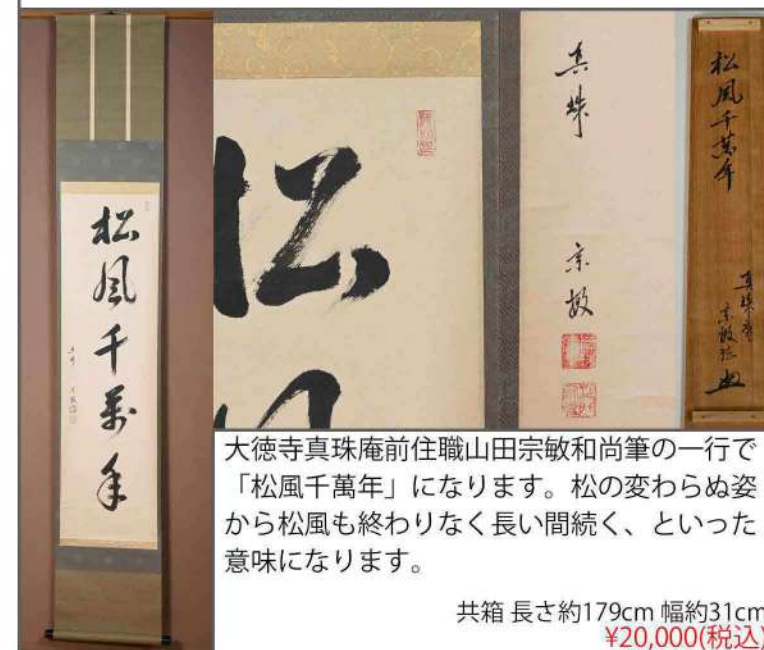 松風千萬年
真珠 宗敏
松風千萬年
真珠庵
宗敏
大徳寺真珠庵前住職山田宗敏和尚筆の一行で
「松風千萬年」になります。松の変わらぬ姿
から松風も終わりなく長い間続く、といった
意味になります。
共箱 長さ約179cm 幅約31cm
¥20,000(税込)